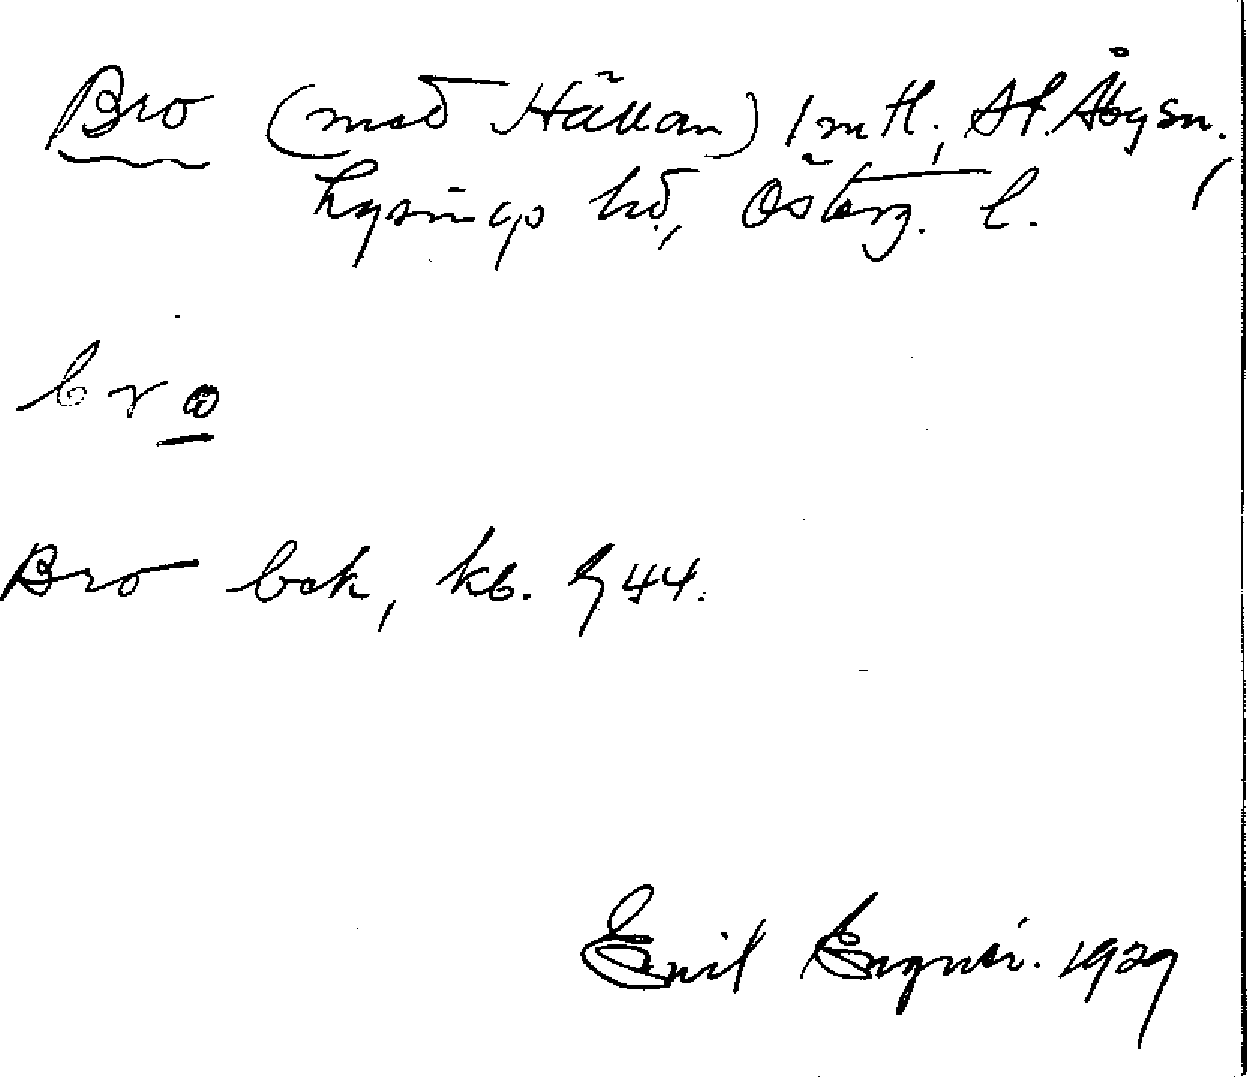 Bro (med Hällan) 1 mtl, St. Åby sn,
Lysings hd, Österg. l.
bro
Bro bck, kb. 944.
Emil 1929